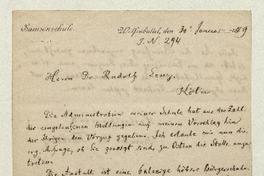 Samsonschule.
Wolfenbüttel, den 30 Januar 1889
J. N. 294
Herrn Dr. Rudolf Lenz,
Köln
Die Administration meiner Schule hat aus der Zahl
der eingelaufenen Meldungen auf meinen Vorschlag hin
der Ihrigen den Vorzug gegeben. Ich erlaube mir nun die
erg. Anfrage, ob Sie geneigt sind, zu Ostern die Stelle anzu-
treten.
Die Anstalt ist eine höhere Bürgerschule